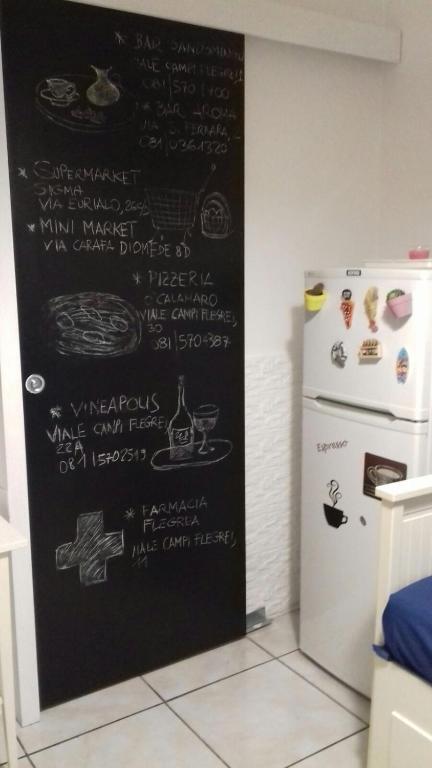 * BAR SANDOMINGO
VIALE CAMPI FLEGREI,
081/570
* BAR AROMA
VIA G. FERRARA,
081/0361320
* SUPERMARKET
SIGMA
VIA EURIALO,
* MINI MARKET
VIA CARAFA DIOMEDE 8D
* PIZZERIA
O' CALAMARO
VIALE CAMPI FLEGREI,
30
081/5704387
* VINEAPOLIS
VIALE CAMPI FLEGREI
22A
081/5702519
* FARMACIA
FLEGREA
VIALE CAMPI FLEGREI,
11
Espresso